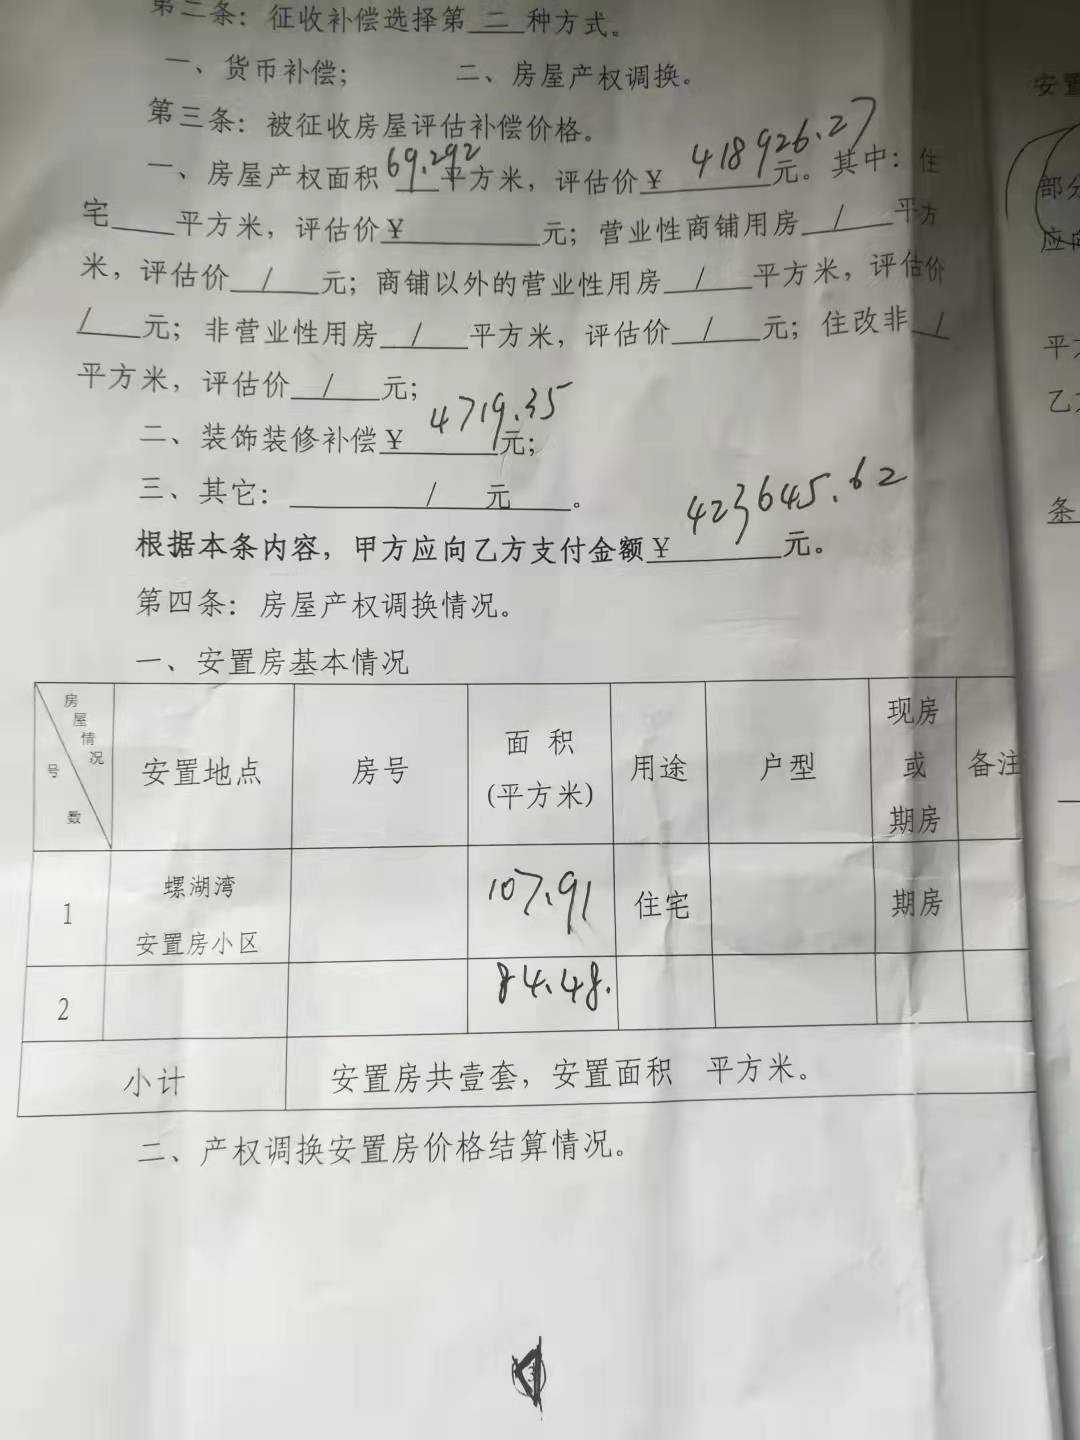 第二条：征收补偿选择第二种方式。
一、货币补偿； 二、房屋产权调换。
第三条：被征收房屋评估补偿价格。
一、房屋产权面积69.292平方米，评估价¥418926.27元。其中：住
宅____平方米，评估价¥________元；营业性商铺用房/平方
米，评估价/元；商铺以外的营业性用房/平方米，评估价
/元；非营业性用房/平方米，评估价/元；住改非/
平方米，评估价/元；
二、装饰装修补偿¥4719.35元；
三、其它：/元。
根据本条内容，甲方应向乙方支付金额¥423645.62元。
第四条：房屋产权调换情况。
一、安置房基本情况
房屋情况 号数 安置地点 房号 面积(平方米) 用途 户型 现房或期房 备注
1 螺湖湾安置房小区 107.91 住宅 期房
2 84.48.
小计 安置房共壹套，安置面积 平方米。
二、产权调换安置房价格结算情况。
安置
部分
应向
平方
乙方
条